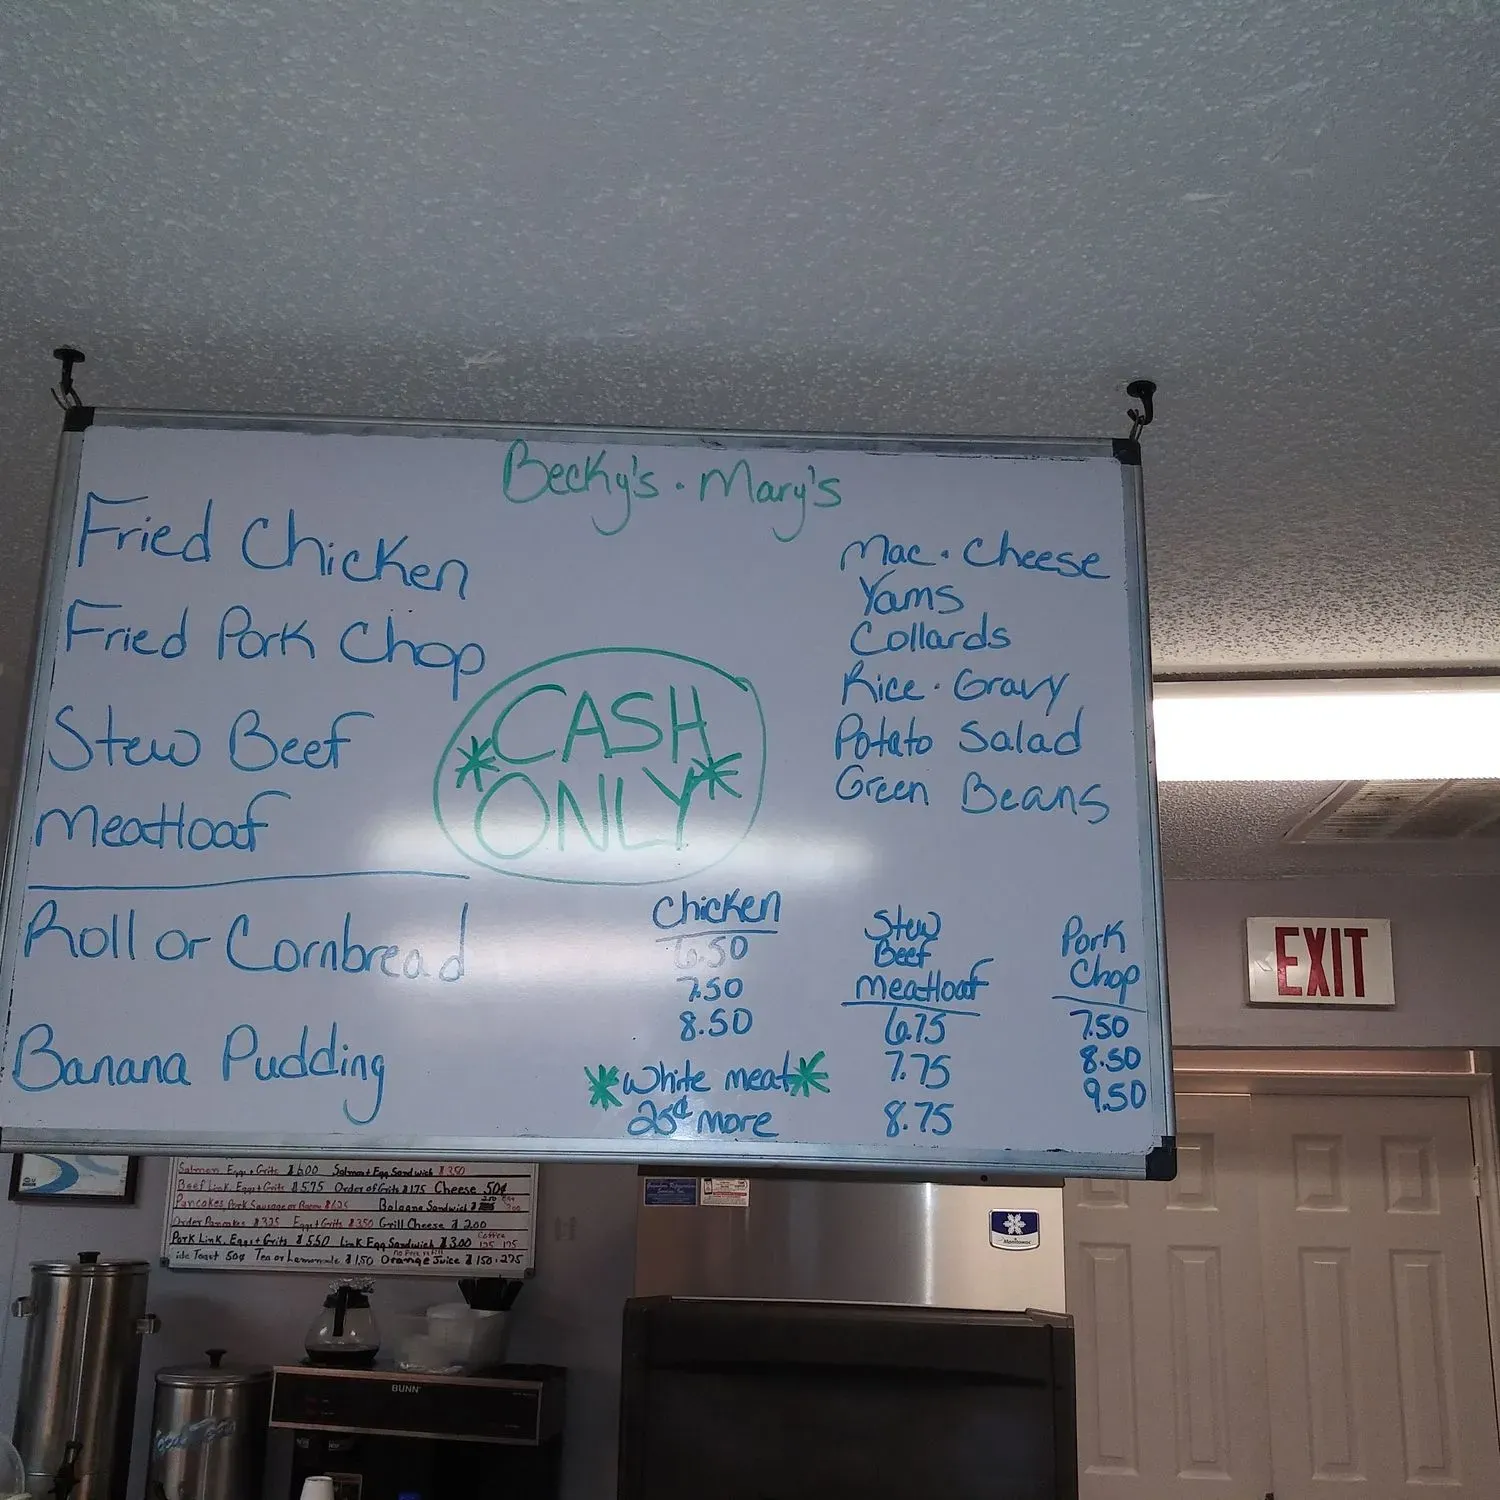 Becky's • Mary's
Fried Chicken
Fried Pork Chop
Stew Beef
Meatloaf
Roll or Cornbread
Banana Pudding
*CASH
ONLY*
Mac • Cheese
Yams
Collards
Rice • Gravy
Potato Salad
Green Beans
Chicken
6.50
7.50
8.50
*White meat*
25¢ more
Stew
Beef
Meatloaf
6.75
7.75
8.75
Pork
Chop
7.50
8.50
9.50
EXIT
Salmon Eggs + Grits $6.00 Salmon + Egg Sandwich $3.50
Beef Link, Eggs + Grits $5.75 Order of Grits $1.75 Cheese 50¢
Pancakes, Pork Sausage or Bacon $6.25 Bologna Sandwich
Order Pancakes $3.25 Egg + Grits $3.50 Grill Cheese $2.00
Pork Link, Eggs + Grits $5.50 Link Egg Sandwich $3.00 Coffee
Toast 50¢ Tea or Lemonade $1.50 Orange Juice $1.50 • 2.75
Manitowoc
BUNN